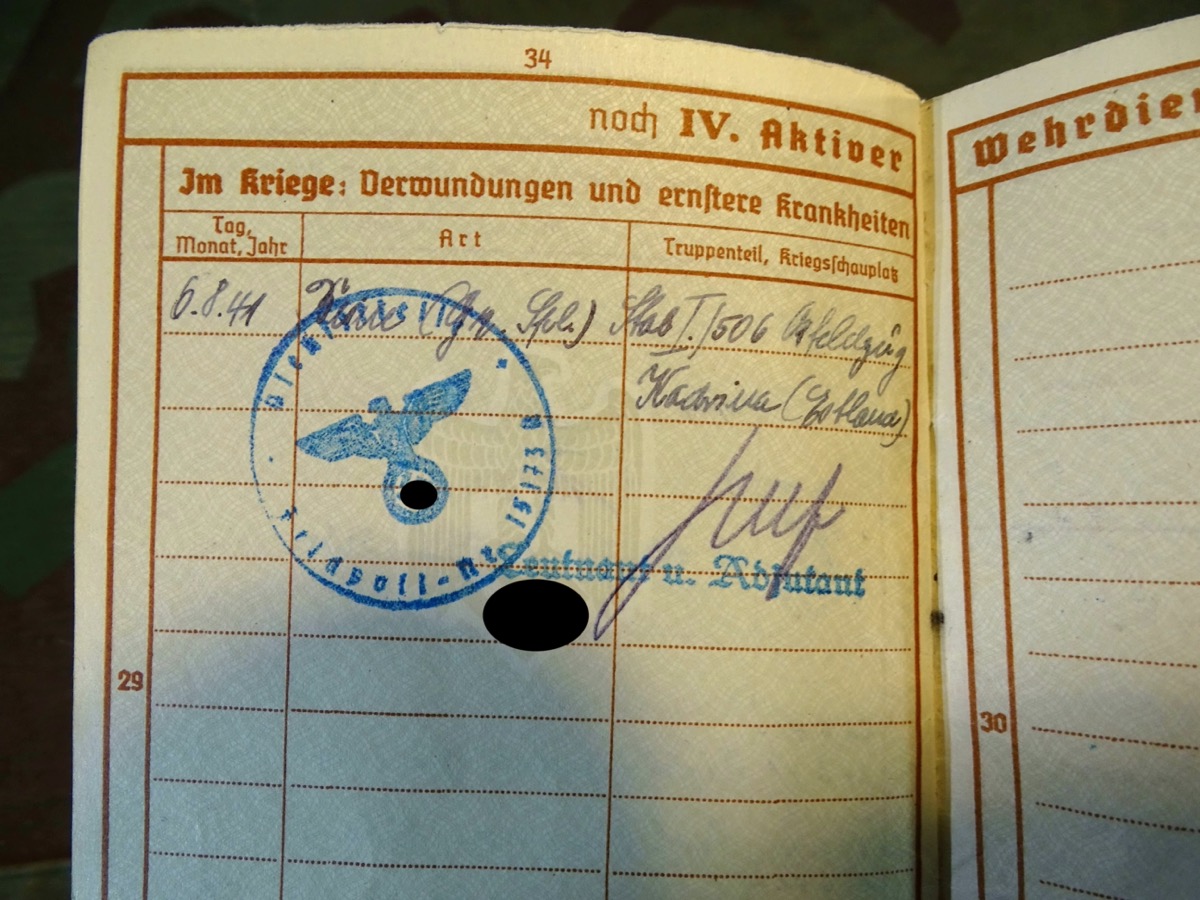 34
noch IV. Aktiver
Wehrdien
Im Kriege: Verwundungen und ernstere Krankheiten
Tag, Monat, Jahr
Art
Truppenteil, Kriegsschauplatz
6.8.41 (Gr. Spl.) Stab I./506 Ostfeldzug
Kadrina (Estland)
Dienst
Feldpost-Nr. 15173 B
Leutnant u. Adjutant
29
30